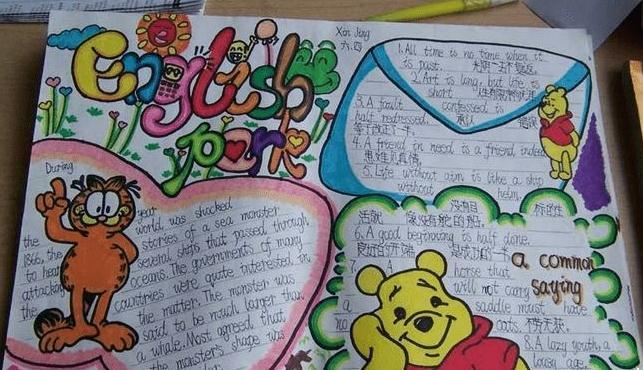 English
park
Xin Jing
六.四
1. All time is no time when it
is past.
2. Art is long, but life is
short
3. A fault confessed is
half redressed. 承认
等于改正了一半.
4. A friend in need is a friend indeed
患难见真情.
5. Life without aim is like a ship
without helm.
活就 像没有舵的船.
6. A good beginning is half done.
良好的开端
7. A horse that
will not carry
a saddle must have
no oats. 不劳无获.
8. A lazy youth, a
lousy age.
a common
saying
During
the year
1866, the world was shocked
to hear stories of a sea monster
attacking several ships that passed through
the oceans. The governments of many
countries were quite interested in
the matter. The monster was
said to be much larger than
a whale. Most agreed that
the monster's shape was